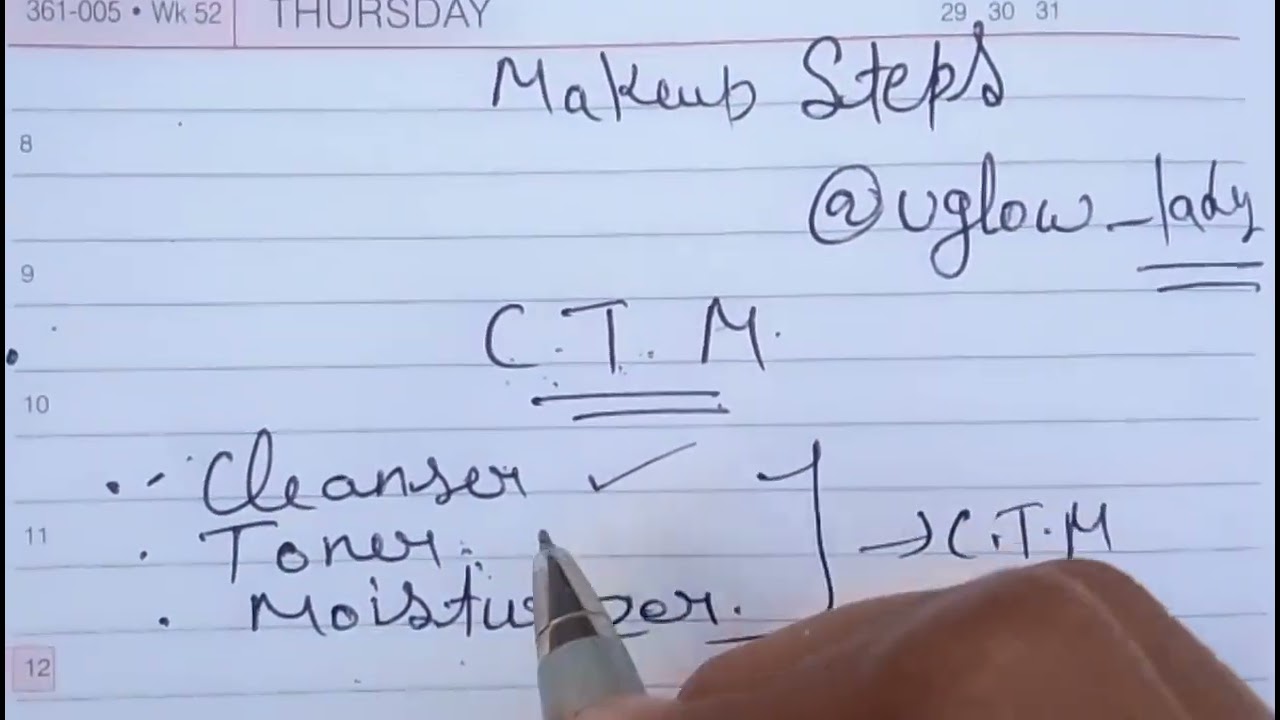 361-005 • Wk 52 THURSDAY 29 30 31
Makeup Steps
8
@uglow_lady
9
C.T.M.
10
Cleanser ✓
11 Toner. → C.T.M
Moisturizer.
12